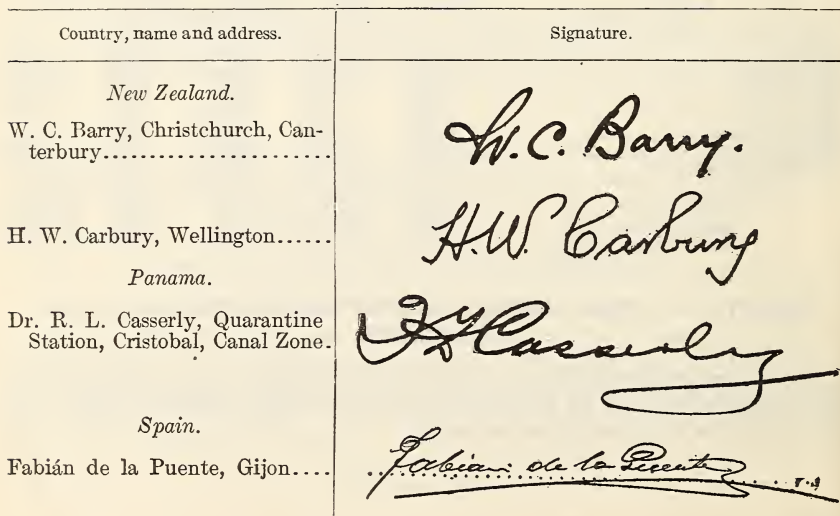 Country, name and address.
Signature.
New Zealand.
W. C. Barry, Christchurch, Can-
terbury......................
W. C. Barry.
H. W. Carbury, Wellington......
H. W. Carbury
Panama.
Dr. R. L. Casserly, Quarantine
Station, Cristobal, Canal Zone.
Casserly
Spain.
Fabián de la Puente, Gijon....
Fabian de la Puente